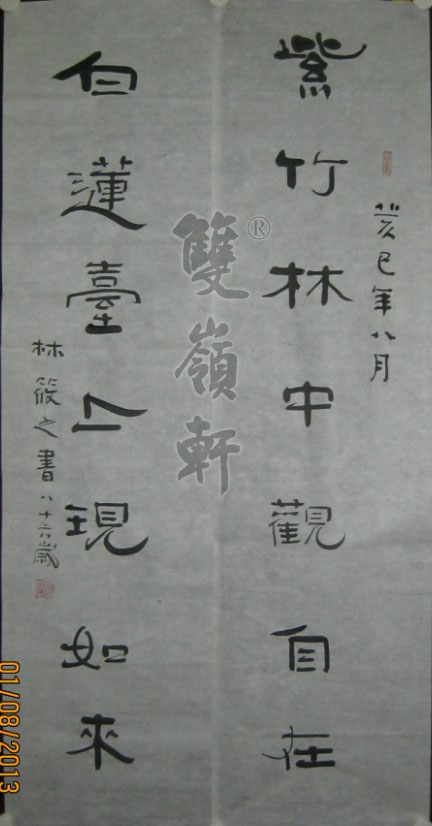 紫竹林中觀自在
癸巳年八月
白蓮臺上現如來
林筱之書八十六歲
雙嶺軒®
01/08/2013